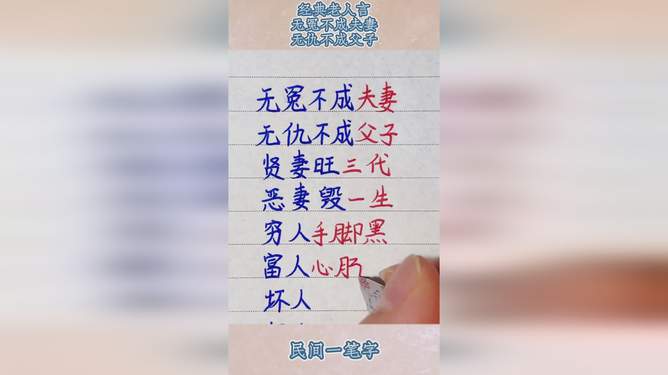 经典老人言
无冤不成夫妻
无仇不成父子
无冤不成夫妻
无仇不成父子
贤妻旺三代
恶妻毁一生
穷人手脚黑
富人心
坏人
民间一笔字